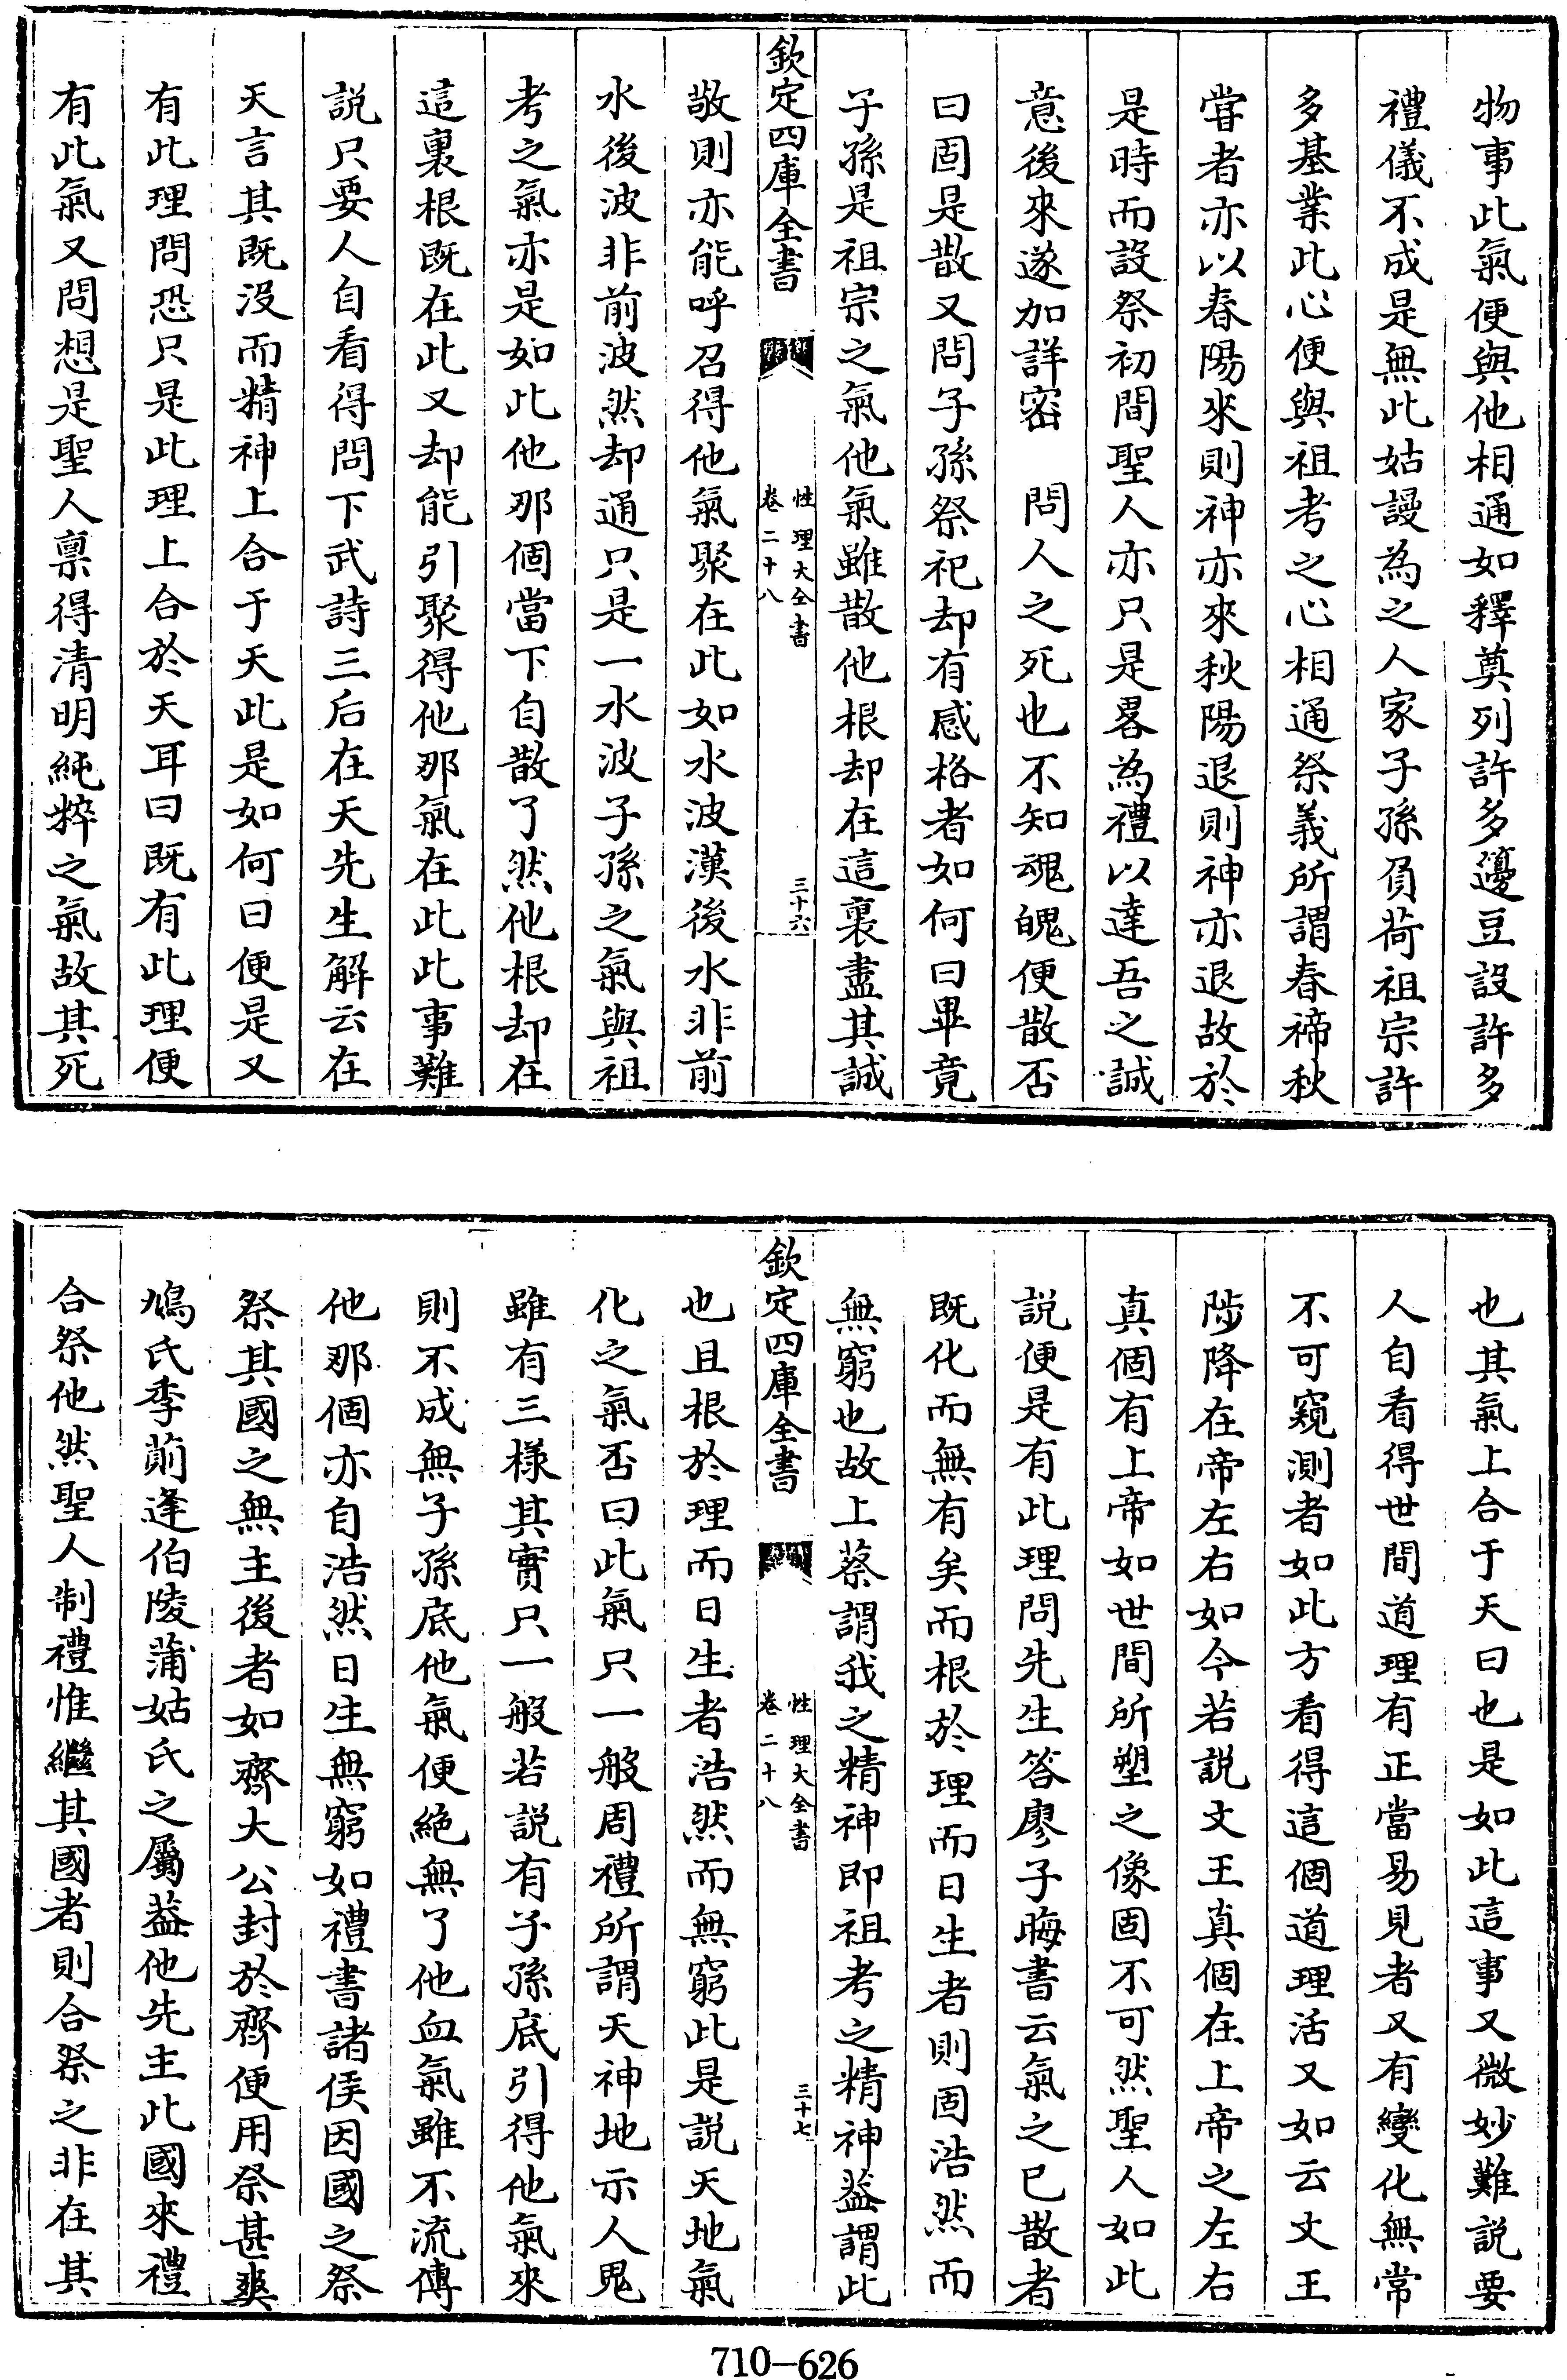 物事此氣便與他相通如釋奠列許多籩豆設許多
禮儀不成是無此姑謾為之人家子孫負荷祖宗許
多基業此心便與祖考之心相通祭義所謂春禘秋
嘗者亦以春陽來則神亦來秋陽退則神亦退故於
是時而設祭初間聖人亦只是畧為禮以達吾之誠
意後來遂加詳密　問人之死也不知魂魄便散否
曰固是散又問子孫祭祀却有感格者如何曰畢竟
子孫是祖宗之氣他氣雖散他根却在這裏盡其誠
欽定四庫全書
性理大全書
卷二十八
三十六
敬則亦能呼召得他氣聚在此如水波漢後水非前
水後波非前波然却通只是一水波子孫之氣與祖
考之氣亦是如此他那個當下自散了然他根却在
這裏根既在此又却能引聚得他那氣在此此事難
説只要人自看得問下武詩三后在天先生解云在
天言其既沒而精神上合于天此是如何曰便是又
有此理問恐只是此理上合於天耳曰既有此理便
有此氣又問想是聖人禀得清明純粹之氣故其死
也其氣上合于天曰也是如此這事又微妙難説要
人自看得世間道理有正當易見者又有變化無常
不可窺測者如此方看得這個道理活又如云文王
陟降在帝左右如今若説文王真個在上帝之左右
真個有上帝如世間所塑之像固不可然聖人如此
説便是有此理問先生答廖子晦書云氣之已散者
既化而無有矣而根於理而日生者則固浩然而
無窮也故上蔡謂我之精神即祖考之精神葢謂此
欽定四庫全書
性理大全書
卷二十八
三十七
也且根於理而日生者浩然而無窮此是説天地氣
化之氣否曰此氣只一般周禮所謂天神地示人鬼
雖有三樣其實只一般若説有子孫底引得他氣來
則不成無子孫底他氣便絶無了他血氣雖不流傳
他那個亦自浩然日生無窮如禮書諸侯因國之祭
祭其國之無主後者如齊大公封於齊便用祭甚爽
鳩氏季萴逢伯陵蒲姑氏之屬葢他先主此國來禮
合祭他然聖人制禮惟繼其國者則合祭之非在其
710-626